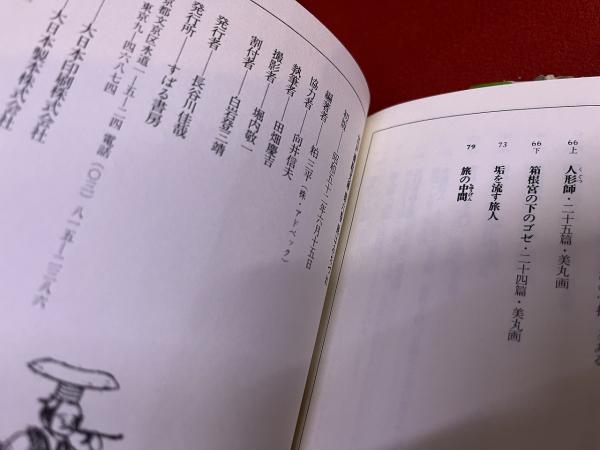 66上 人形師・二十五篇・美丸画
くぐつ
66下 箱根宮の下のゴゼ・二十四篇・美丸画
73 垢を流す旅人
79 旅の中間
初刷——昭和五十二年六月十五日
編著者——粕三平
協力者——向井信夫(株・アドベック)
執筆者——田畑慶吉
撮影者——堀内敬一
割付者——白岩登三靖
発行者——長谷川佳哉
発行所——すばる書房
京都文京区水道一—五—二四 電話(〇三)八一五—二三八六
東京九—四六八七四
大日本印刷株式会社
大日本製本株式会社